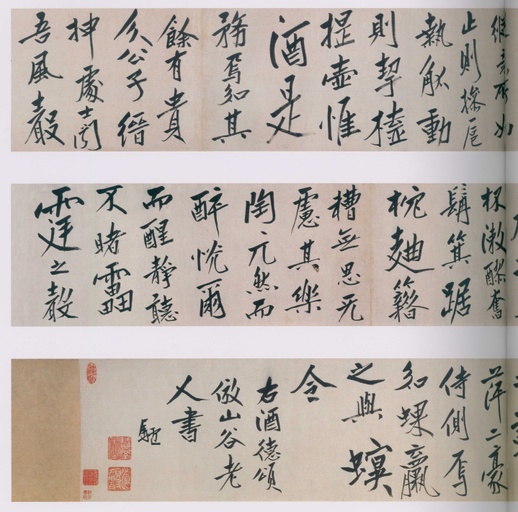 縱意所如
止則操卮
執觚動
則挈榼
提壺惟
酒是
務焉知其
餘有貴
介公子縉
紳處士聞
吾風聲
杯漱醪奮
髯箕踞
枕麴籍
糟無思无
慮其樂
陶〻兀然而
醉恍爾
而醒靜聽
不睹靁
霆之聲
萍二豪
侍側焉
如蜾蠃
之與螟
令
右酒德頌
倣山谷老
人書